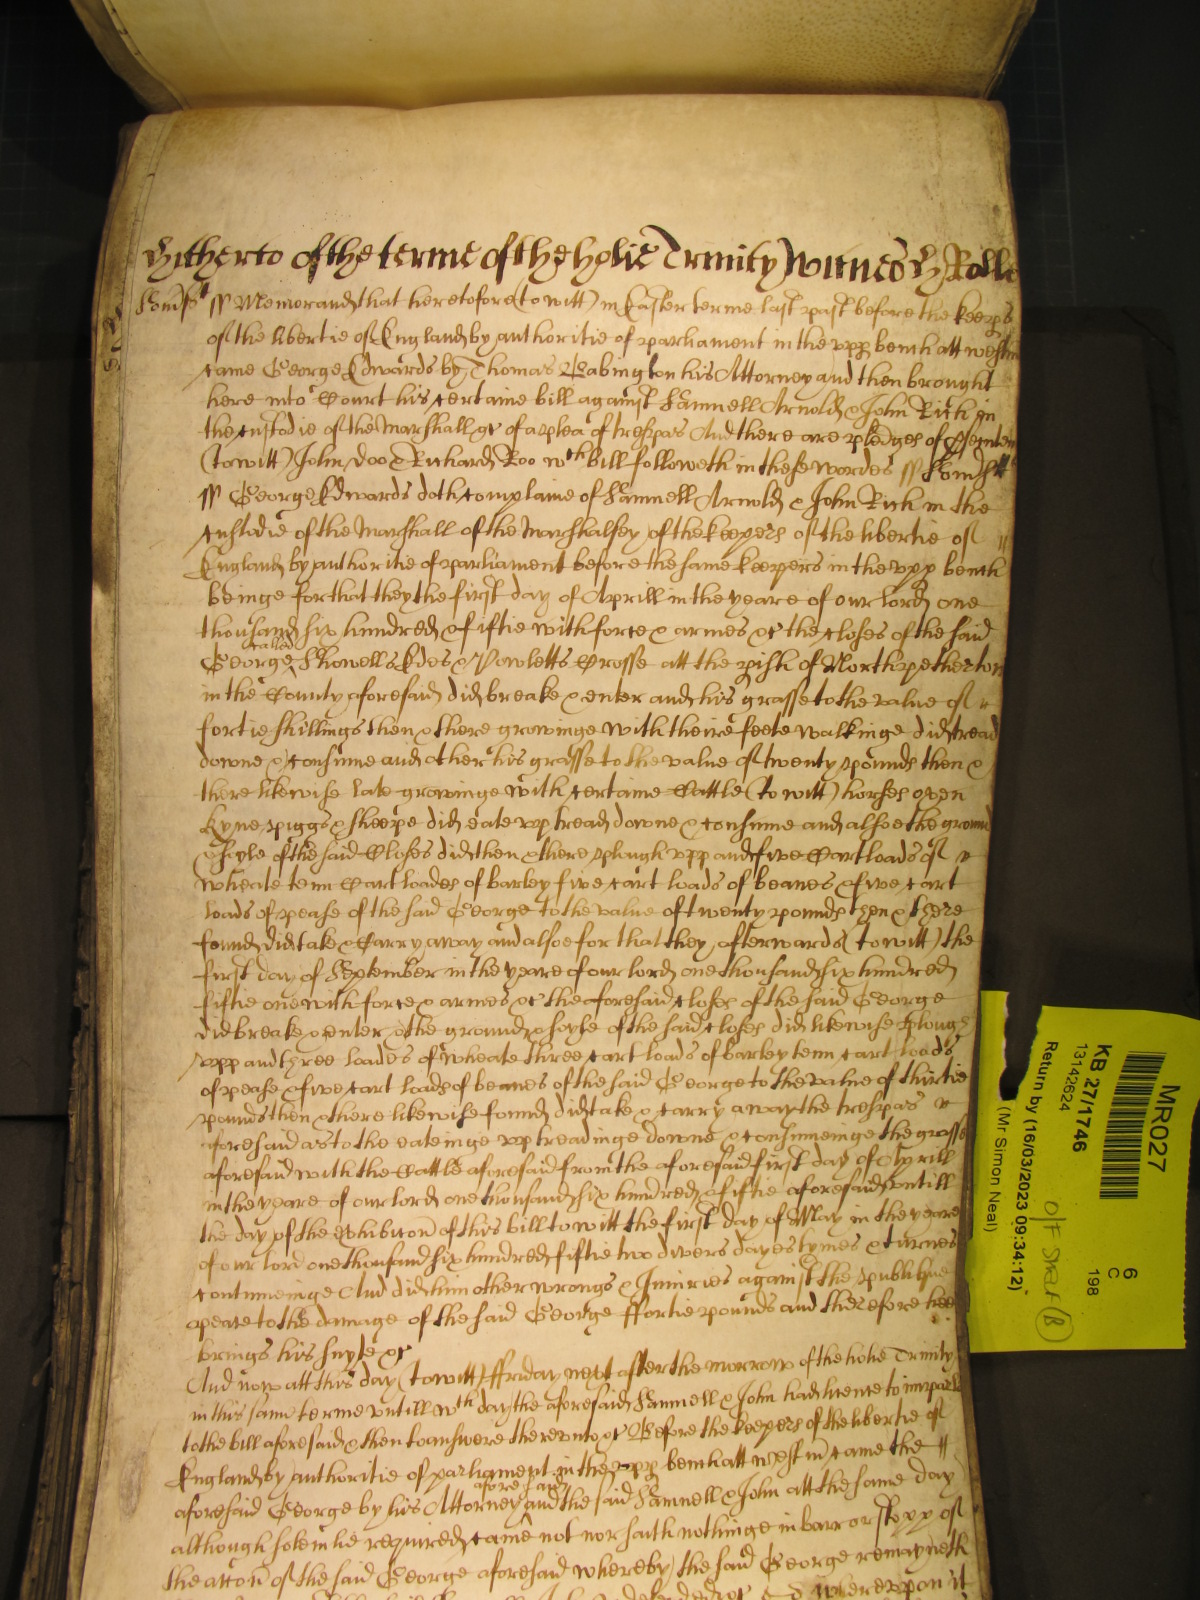 Hitherto of the terme of the holie Trinity Witnes H Rolle
Som̃s̃t ss Memorand that heretofore (to witt) in Easter terme last past before the keeps
of the libertie of England by authoritie of parliament in the upp bench att Westm̃
came George Edwards by Thomas Babington his Attorney and then brought
here into Court his certaine bill against Samuell Arnold & John Rich in
the custodie of the Marshall &c of a plea of trespas And there are pledges of
(to witt) John Doo & Richard Roo wch bill followeth in these wordes ss Som̃st
ss George Edwards doth complaine of Samuell Arnold & John Rich in the
custodie of the Marshall of the Marshalsey of the keepers of the libertie of
England by authoritie of parliament before the same keepers in the upp bench
beinge for that they the first day of Aprill in the yeare of our lord one
thousand six hundred & fiftie with force & armes &c the closes of the said
George called Showells & Powletts Crosse att the pish of North petherton
in the County aforesaid did breake & enter and his grasse to the value of
fortie shillings then & there growinge with theire feete walkinge did tread
downe & consume and other his grasse to the value of twenty pounds then &
there likewise late growinge with certaine Cattle (to witt) horses oxen
kyne piggs & sheepe did eate up tread downe & consume and alsoe the ground
& soyle of the said Closes did then & there plough upp and five Cart loads of
wheate tenn Cart loades of barley five cart loads of beanes & five cart
loads of pease of the said George to the value of twenty pounds then & there
found did take & Carry away and alsoe for that they afterwards (to witt) the
first day of September in the yeare of our lord one thousand six hundred
fiftie one with force & armes &c the aforesaid closes of the said George
did breake & enter & the ground & soyle of the said closes did likewise plough
upp and three loades of wheate three cart loads of barley tenn cart loads
of pease & five cart loads of beanes of the said George to the value of thirtie
pounds then & there likewise found did take & carry away the trespas
aforesaid as to the eateinge up treadinge downe & consumeinge the grasse
aforesaid with the Cattle aforesaid from the aforesaid first day of Aprill
in the yeare of our lord one thousand six hundred & fiftie aforesaid untill
the day of the exhibitoñ of this bill to witt the first day of May in the yeare
of our lord one thousand six hundred fiftie two divers dayes tymes & turnes
continueinge And did him other wrongs & Iniuries against the publique
peace to the damage of the said George ffortie pounds and therefore hee
brings his suyte &c
And now att this day (to witt) ffriday next after the morrow of the holie Trinity
in this same terme untill wch day the aforesaid Samuell & John had licence to imparle
to the bill aforesaid & then to answere thereunto &c Before the keepers of the libertie of
England by authoritie of parliament in the upp bench att Westm̃ came the
aforesaid George by his Attorney aforesaid and the said Samuell & John att the same day
although solemlie required came not nor saith nothinge in barr or stopp of
the actoñ of the said George aforesaid whereby the said George remayneth
whereupon it
MR027
6
C
198
KB 27/1746
13142624
Return by (16/03/2023 09:34:12)
(Mr Simon Neal)
O/F Shelf (B)